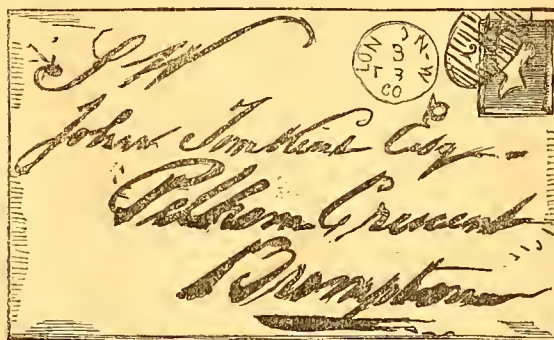 S W
LON N-W
7
3
3
60
John Tomkins Esq
Pelham Crescent
Brompton